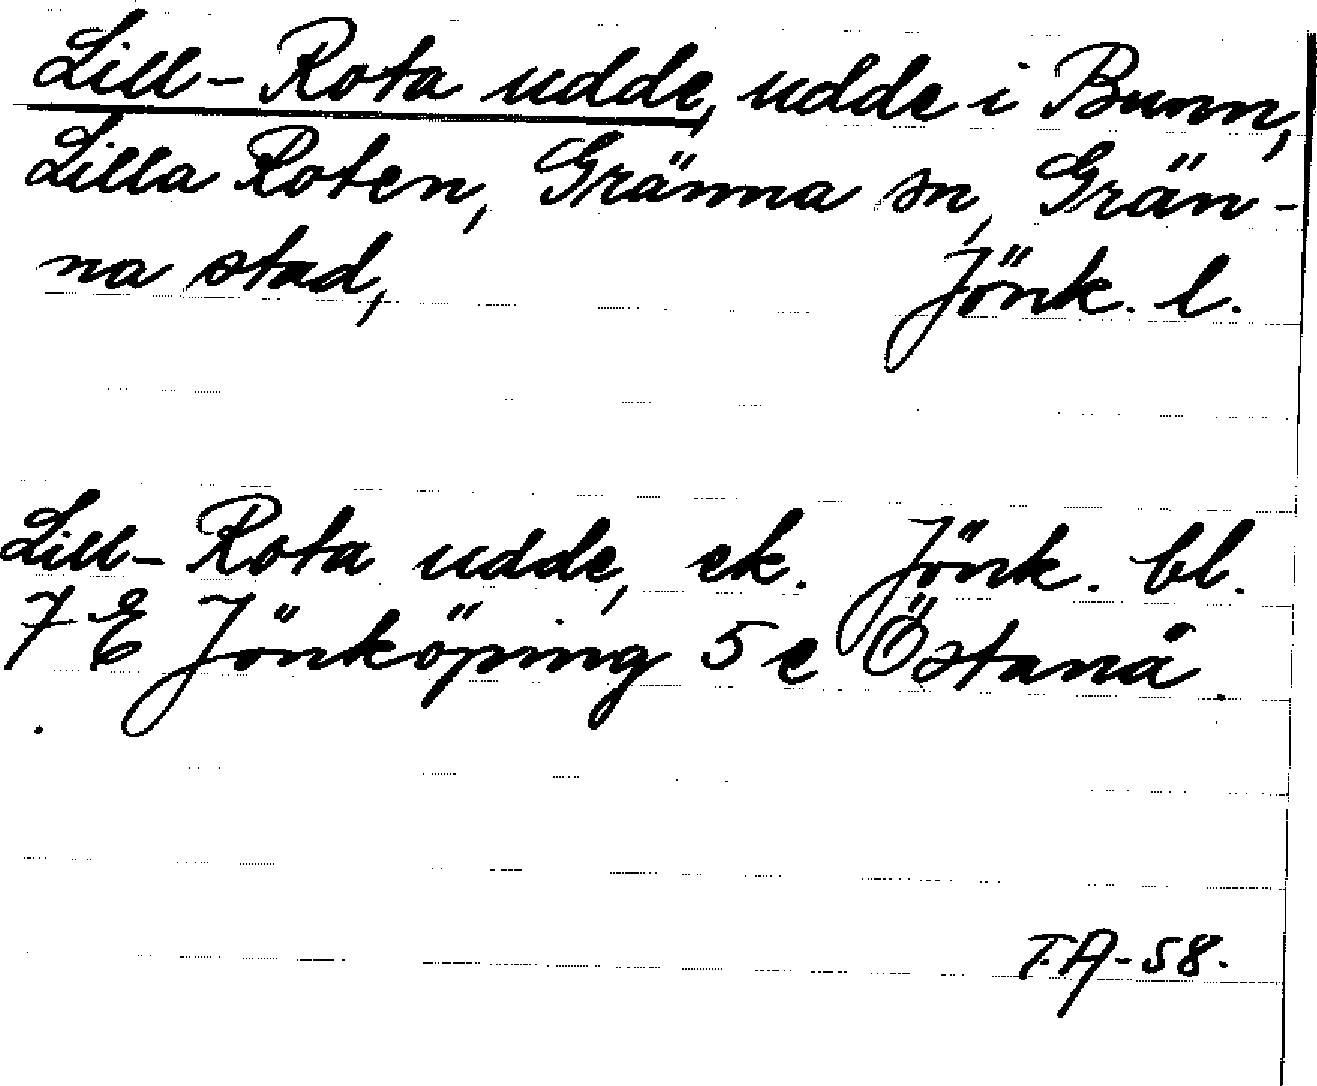 Lill-Rota udde, udde i Bunn,
Lilla Roten, Gränna sn, Grän-
na stad, Jönk. l.
Lill-Rota udde, ek. Jönk. bl.
7 E Jönköping 5 e Östanå.
T.A-58.